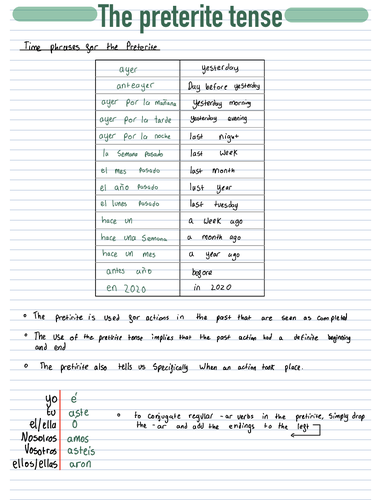 The preterite tense
Time phrases for the Preterite
ayer yesterday
anteayer Day before yesterday
ayer por la mañana yesterday morning
ayer por la tarde yesterday evening
ayer por la noche last night
la semana pasado last week
el mes pasado last month
el año pasado last year
el lunes pasado last tuesday
hace un a week ago
hace una semana a month ago
hace un mes a year ago
antes año before
en 2020 in 2020
The pretirite is used for actions in the past that are seen as completed
The use of the pretirite tense implies that the past action had a definite beginning
and end
The pretirite also tells us specifically when an action took place.
yo é
tu aste
el/ella o
Nosotros amos
Vosotros asteis
ellos/ellas aron
to conjugate regular -ar verbs in the pretirite, simply drop
the -ar and add the endings to the left